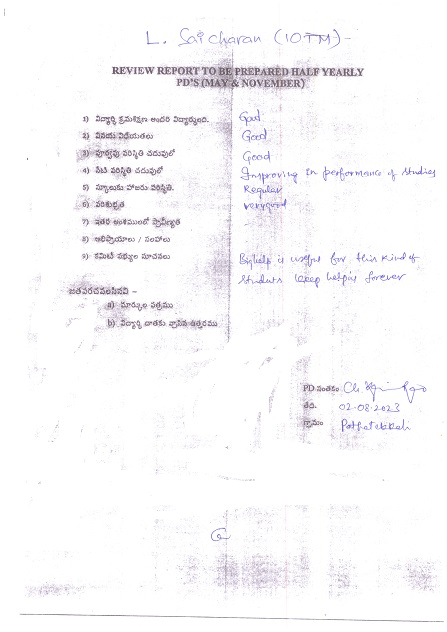 L. Sai charan (10TM) -
REVIEW REPORT TO BE PREPARED HALF YEARLY
PD'S (MAY & NOVEMBER)
1) విద్యార్థి క్రమశిక్షణ అందరి విద్యార్థులది. Good
2) వినయ విధేయతలు Good
3) పూర్వపు పరిస్థితి చదువులో Good
4) నేటి పరిస్థితి చదువులో Improving in performance of studies
5) స్కూలుకు హాజరు పరిస్థితి. Regular
6) పరిశుభ్రత verygood
7) ఇతర అంశములలో ప్రావీణ్యత -
8) అభిప్రాయాలు / సలహాలు
9) కమిటీ సభ్యుల సూచనలు Big help is useful for this kind of
students keep helping forever
జతపరచవలసినవి -
a) మార్కుల పత్రము
b) విద్యార్థి దాతకు వ్రాసిన ఉత్తరము
PD సంతకం Ch.
తేది. 02-08-2023
గ్రామం Pathatekkali